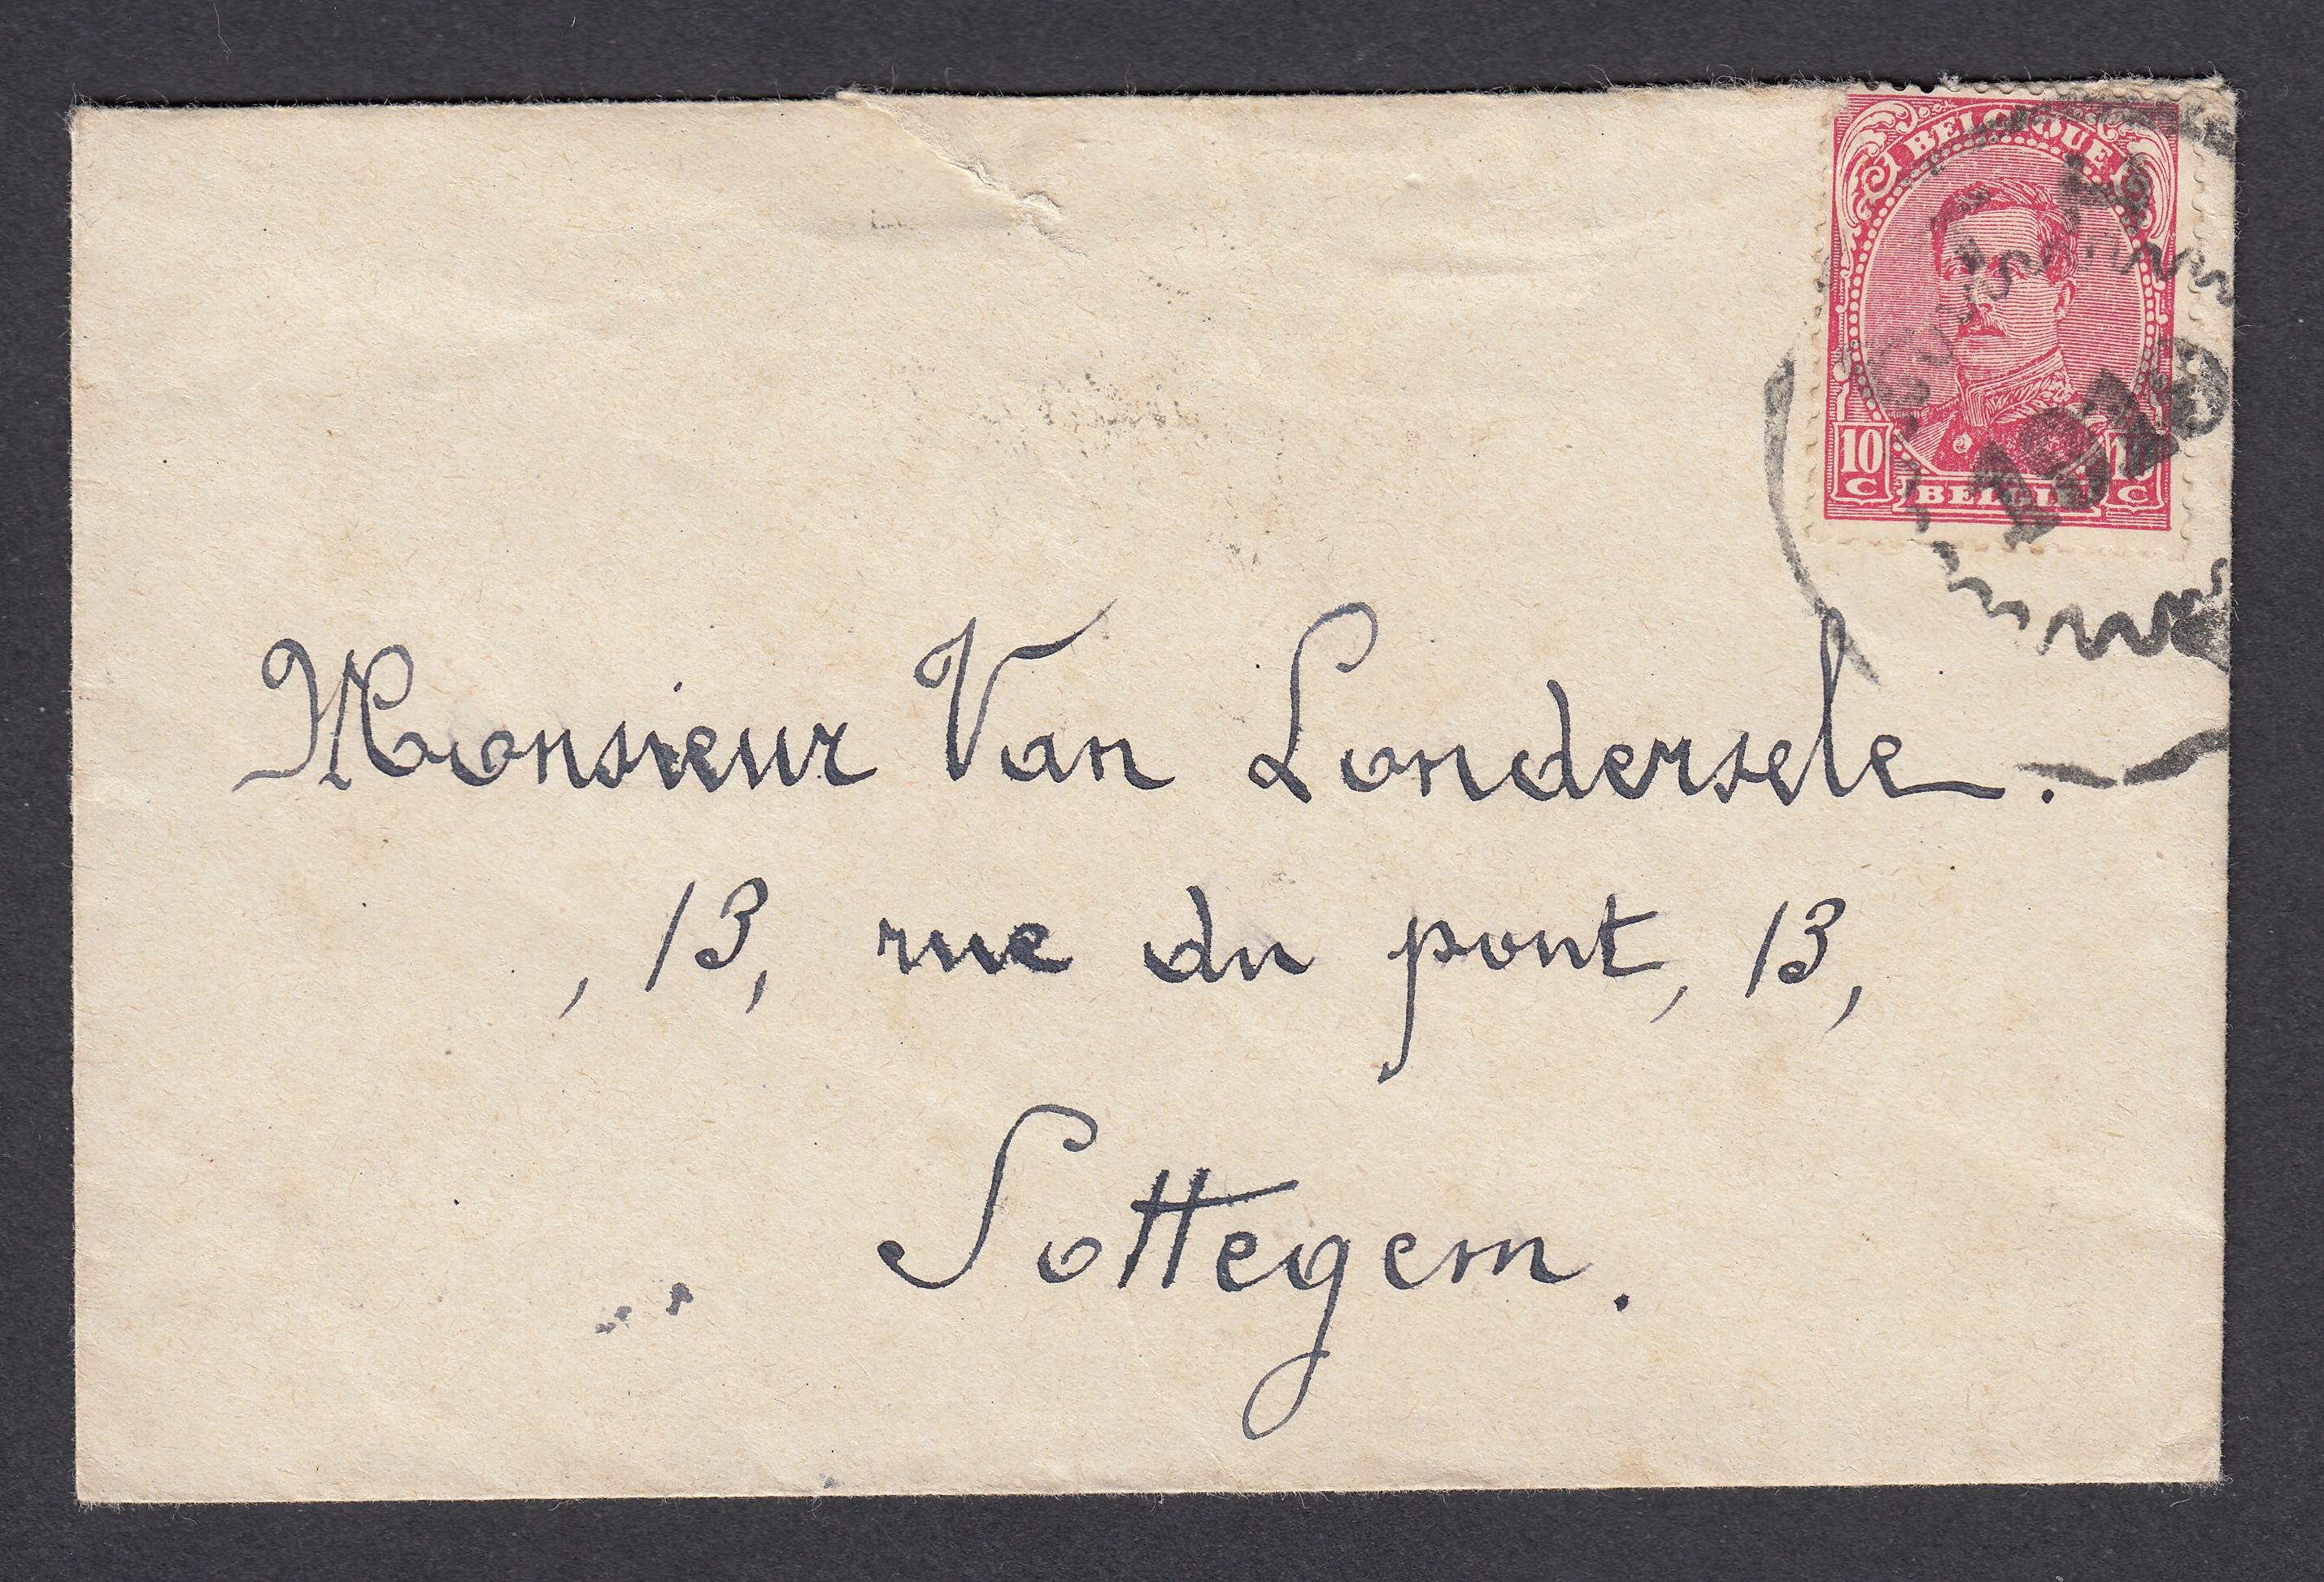 BELGIQUE
10 C
BELGIË
C
Monsieur Van Londersele.
, 13, rue du pont, 13,
Sottegem.